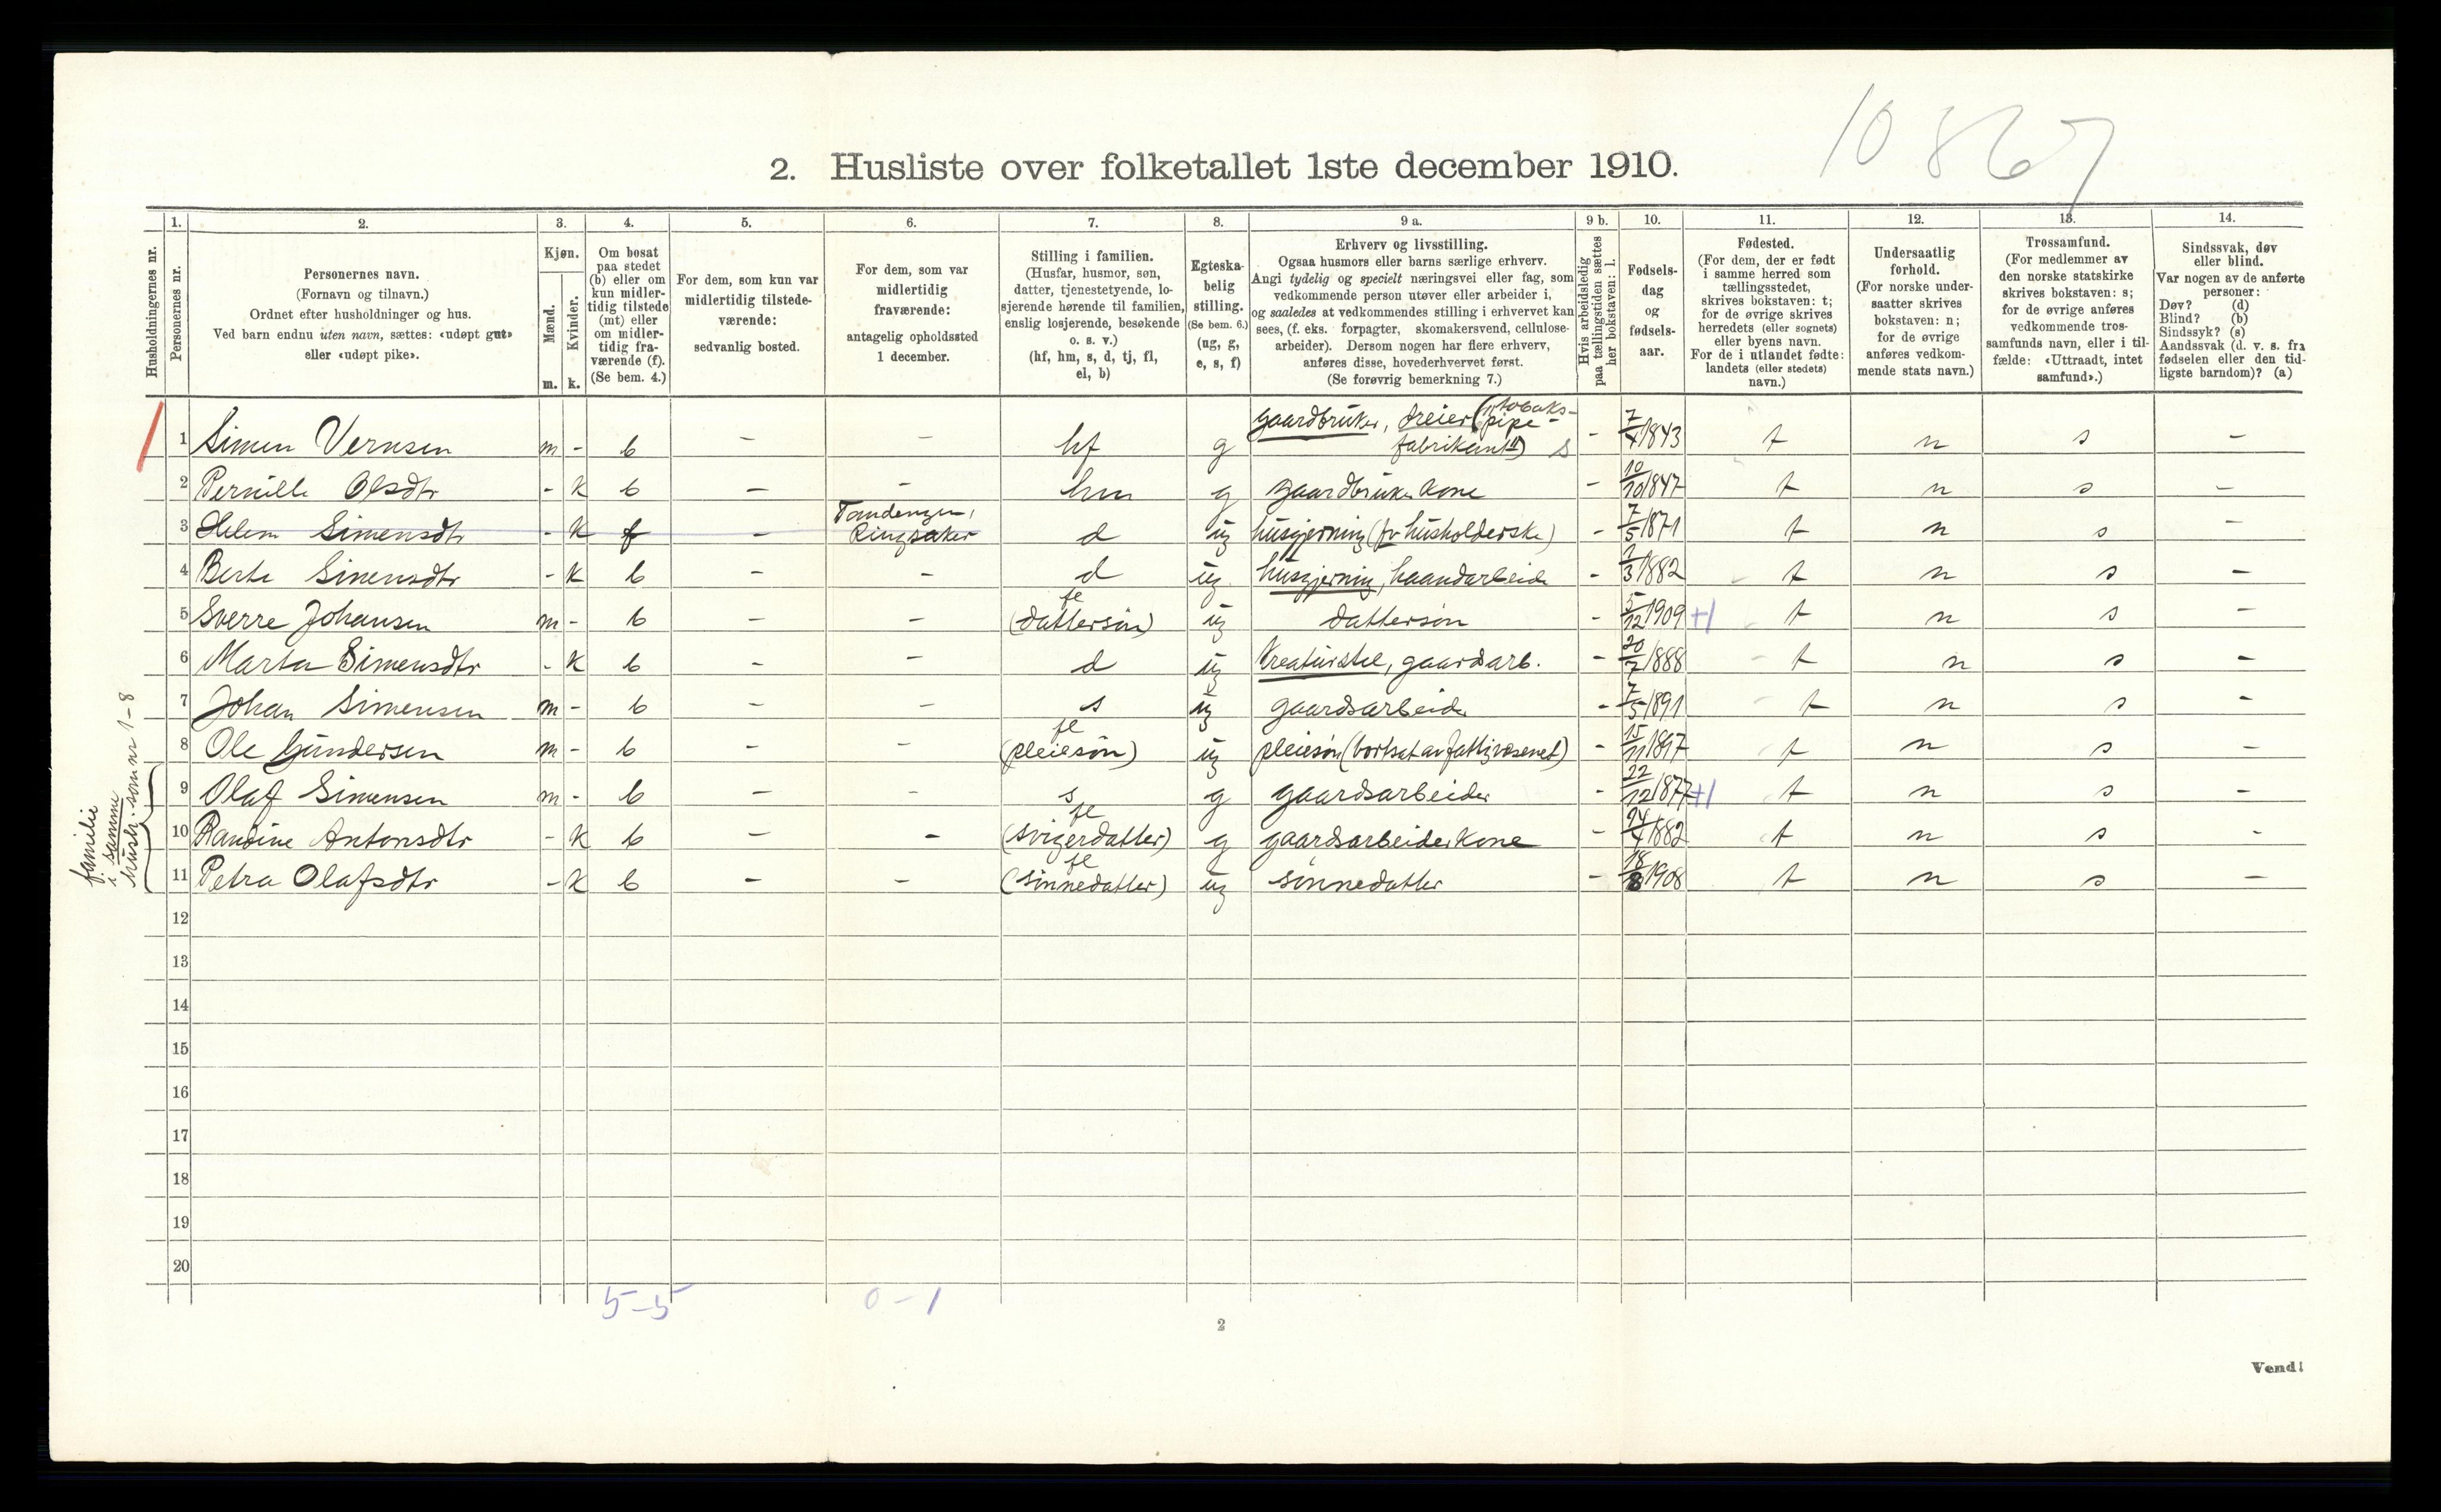 10 867
2. Husliste over folketallet 1ste december 1910.
1. 2. 3. 4. 5. 6. 7. 8. 9 a. 9 b. 10. 11. 12. 13. 14.
Husholdningernes nr.
Personernes nr.
Personernes navn.
(Fornavn og tilnavn.)
Ordnet efter husholdninger og hus.
Ved barn endnu uten navn, sættes: «udøpt gut»
eller «udøpt pike».
Kjøn.
Mænd.
Kvinder.
m. k.
Om bosat
paa stedet
(b) eller om
kun midler-
tidig tilstede
(mt) eller
om midler-
tidig fra-
værende (f).
(Se bem. 4.)
For dem, som kun var
midlertidig tilstede-
værende:
sedvanlig bosted.
For dem, som var
midlertidig
fraværende:
antagelig opholdssted
1 december.
Stilling i familien.
(Husfar, husmor, søn,
datter, tjenestetyende, lo-
sjerende hørende til familien,
enslig losjerende, besøkende
o. s. v.)
(hf, hm, s, d, tj, fl,
el, b)
Egteska-
belig
stilling.
(Se bem. 6.)
(ug, g,
e, s, f)
Erhverv og livsstilling.
Ogsaa husmors eller barns særlige erhverv.
Angi tydelig og specielt næringsvei eller fag, som
vedkommende person utøver eller arbeider i,
og saaledes at vedkommendes stilling i erhvervet kan
sees, (f. eks. forpagter, skomakersvend, cellulose-
arbeider). Dersom nogen har flere erhverv,
anføres disse, hovederhvervet først.
(Se forøvrig bemerkning 7.)
Hvis arbeidsledig
paa tællingstiden sættes
her bokstaven: l.
Fødsels-
dag
og
fødsels-
aar.
Fødested.
(For dem, der er født
i samme herred som
tællingsstedet,
skrives bokstaven: t;
for de øvrige skrives
herredets (eller sognets)
eller byens navn.
For de i utlandet fødte:
landets (eller stedets)
navn.)
Undersaatlig
forhold.
(For norske under-
saatter skrives
bokstaven: n;
for de øvrige
anføres vedkom-
mende stats navn.)
Trossamfund.
(For medlemmer av
den norske statskirke
skrives bokstaven: s;
for de øvrige anføres
vedkommende tros-
samfunds navn, eller i til-
fælde: «Uttraadt, intet
samfund».)
Sindssvak, døv
eller blind.
Var nogen av de anførte
personer:
Døv? (d)
Blind? (b)
Sindssyk? (s)
Aandssvak (d. v. s. fra
fødselen eller den tid-
ligste barndom)? (a)
1 Simen Vernsen m - b - - hf g gaardbruker, dreier ("tobaks-pipe-fabrikant") s - 7/4 1843 t n s -
2 Pernille Olsdtr - k b - - hm g gaardbruker kone - 10/10 1847 t n s -
3 Helene Simensdtr - k f - Ringsaker d ug husgjerning (før husholderske) - 7/5 1871 t n s -
4 Berte Simensdtr - k b - - d ug husgjerning, haandarbeide - 1/3 1882 t n s -
5 Sverre Johansen m - b - - fl (dattersøn) ug dattersøn - 5/12 1909 +1 t n s -
6 Marta Simensdtr - k b - - d ug Kreaturstel, gaardarb. - 20/7 1888 t n s -
7 Johan Simensen m - b - - s ug gaardsarbeide - 7/5 1891 t n s -
8 Ole Gundersen m - b - - fl (pleiesøn) ug pleiesøn (bortsat av fattigvæsenet) - 15/11 1897 t n s -
9 Olaf Simensen m - b - - s g gaardsarbeider - 22/12 1877 +1 t n s -
10 Randine Antonsdtr - k b - - fl (svigerdatter) g gaardsarbeider kone - 24/4 1882 t n s -
11 Petra Olafsdtr - k b - - fl (sønnedatter) ug sønnedatter - 18/8 1908 t n s -
familie
i samme
hush. som nr 1-8
12
13
14
15
16
17
18
19
20
5-5 0-1
2
Vend!